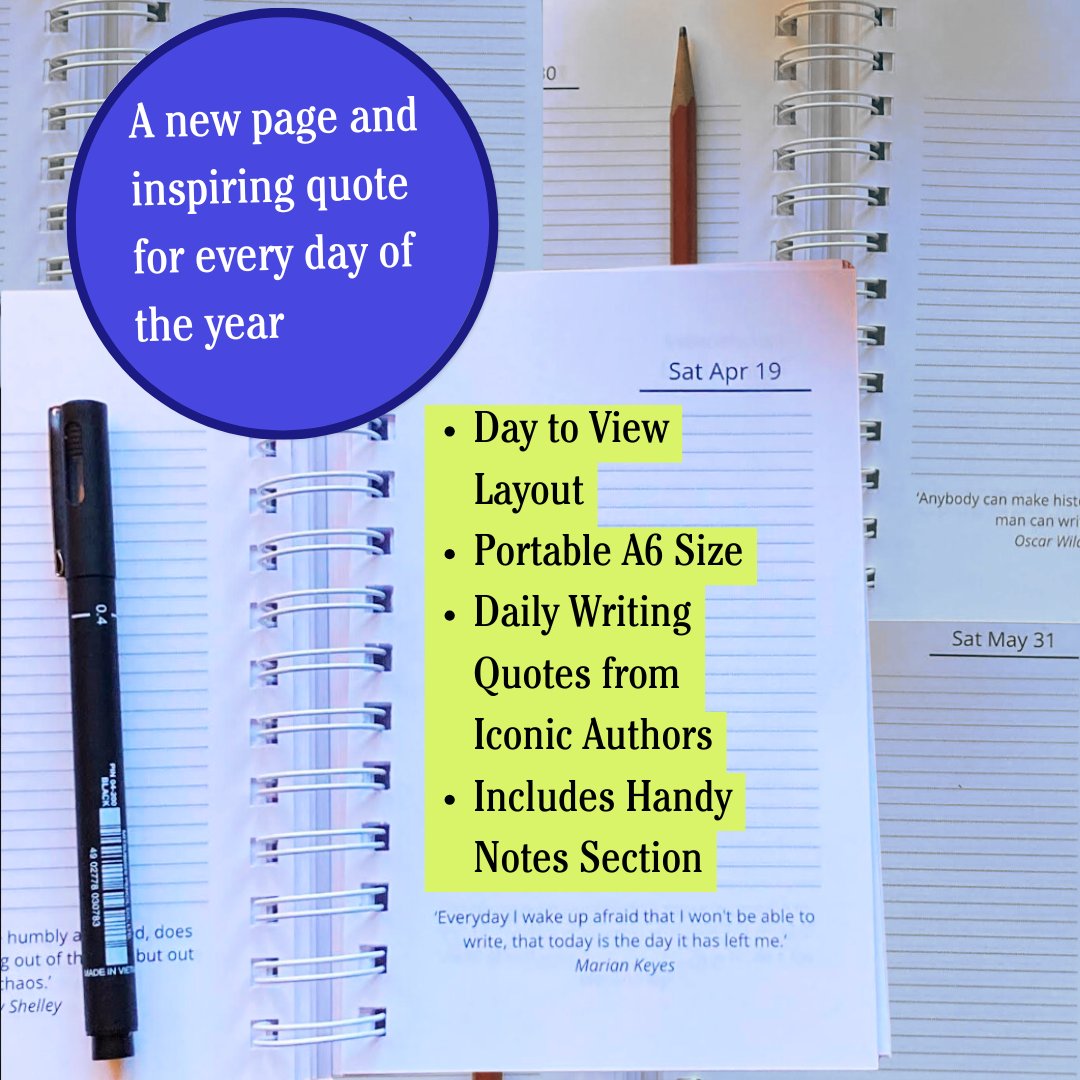 A new page and
inspiring quote
for every day of
the year
30
Sat Apr 19
• Day to View
Layout
• Portable A6 Size
• Daily Writing
Quotes from
Iconic Authors
• Includes Handy
Notes Section
'Everyday I wake up afraid that I won't be able to
write, that today is the day it has left me.'
Marian Keyes
'Anybody can make
man can
Oscar
Sat May 31
0.4
PIN 04-200
BLACK
49 02778 030783
MADE IN
humbly does
out of but out
chaos.'
Shelley